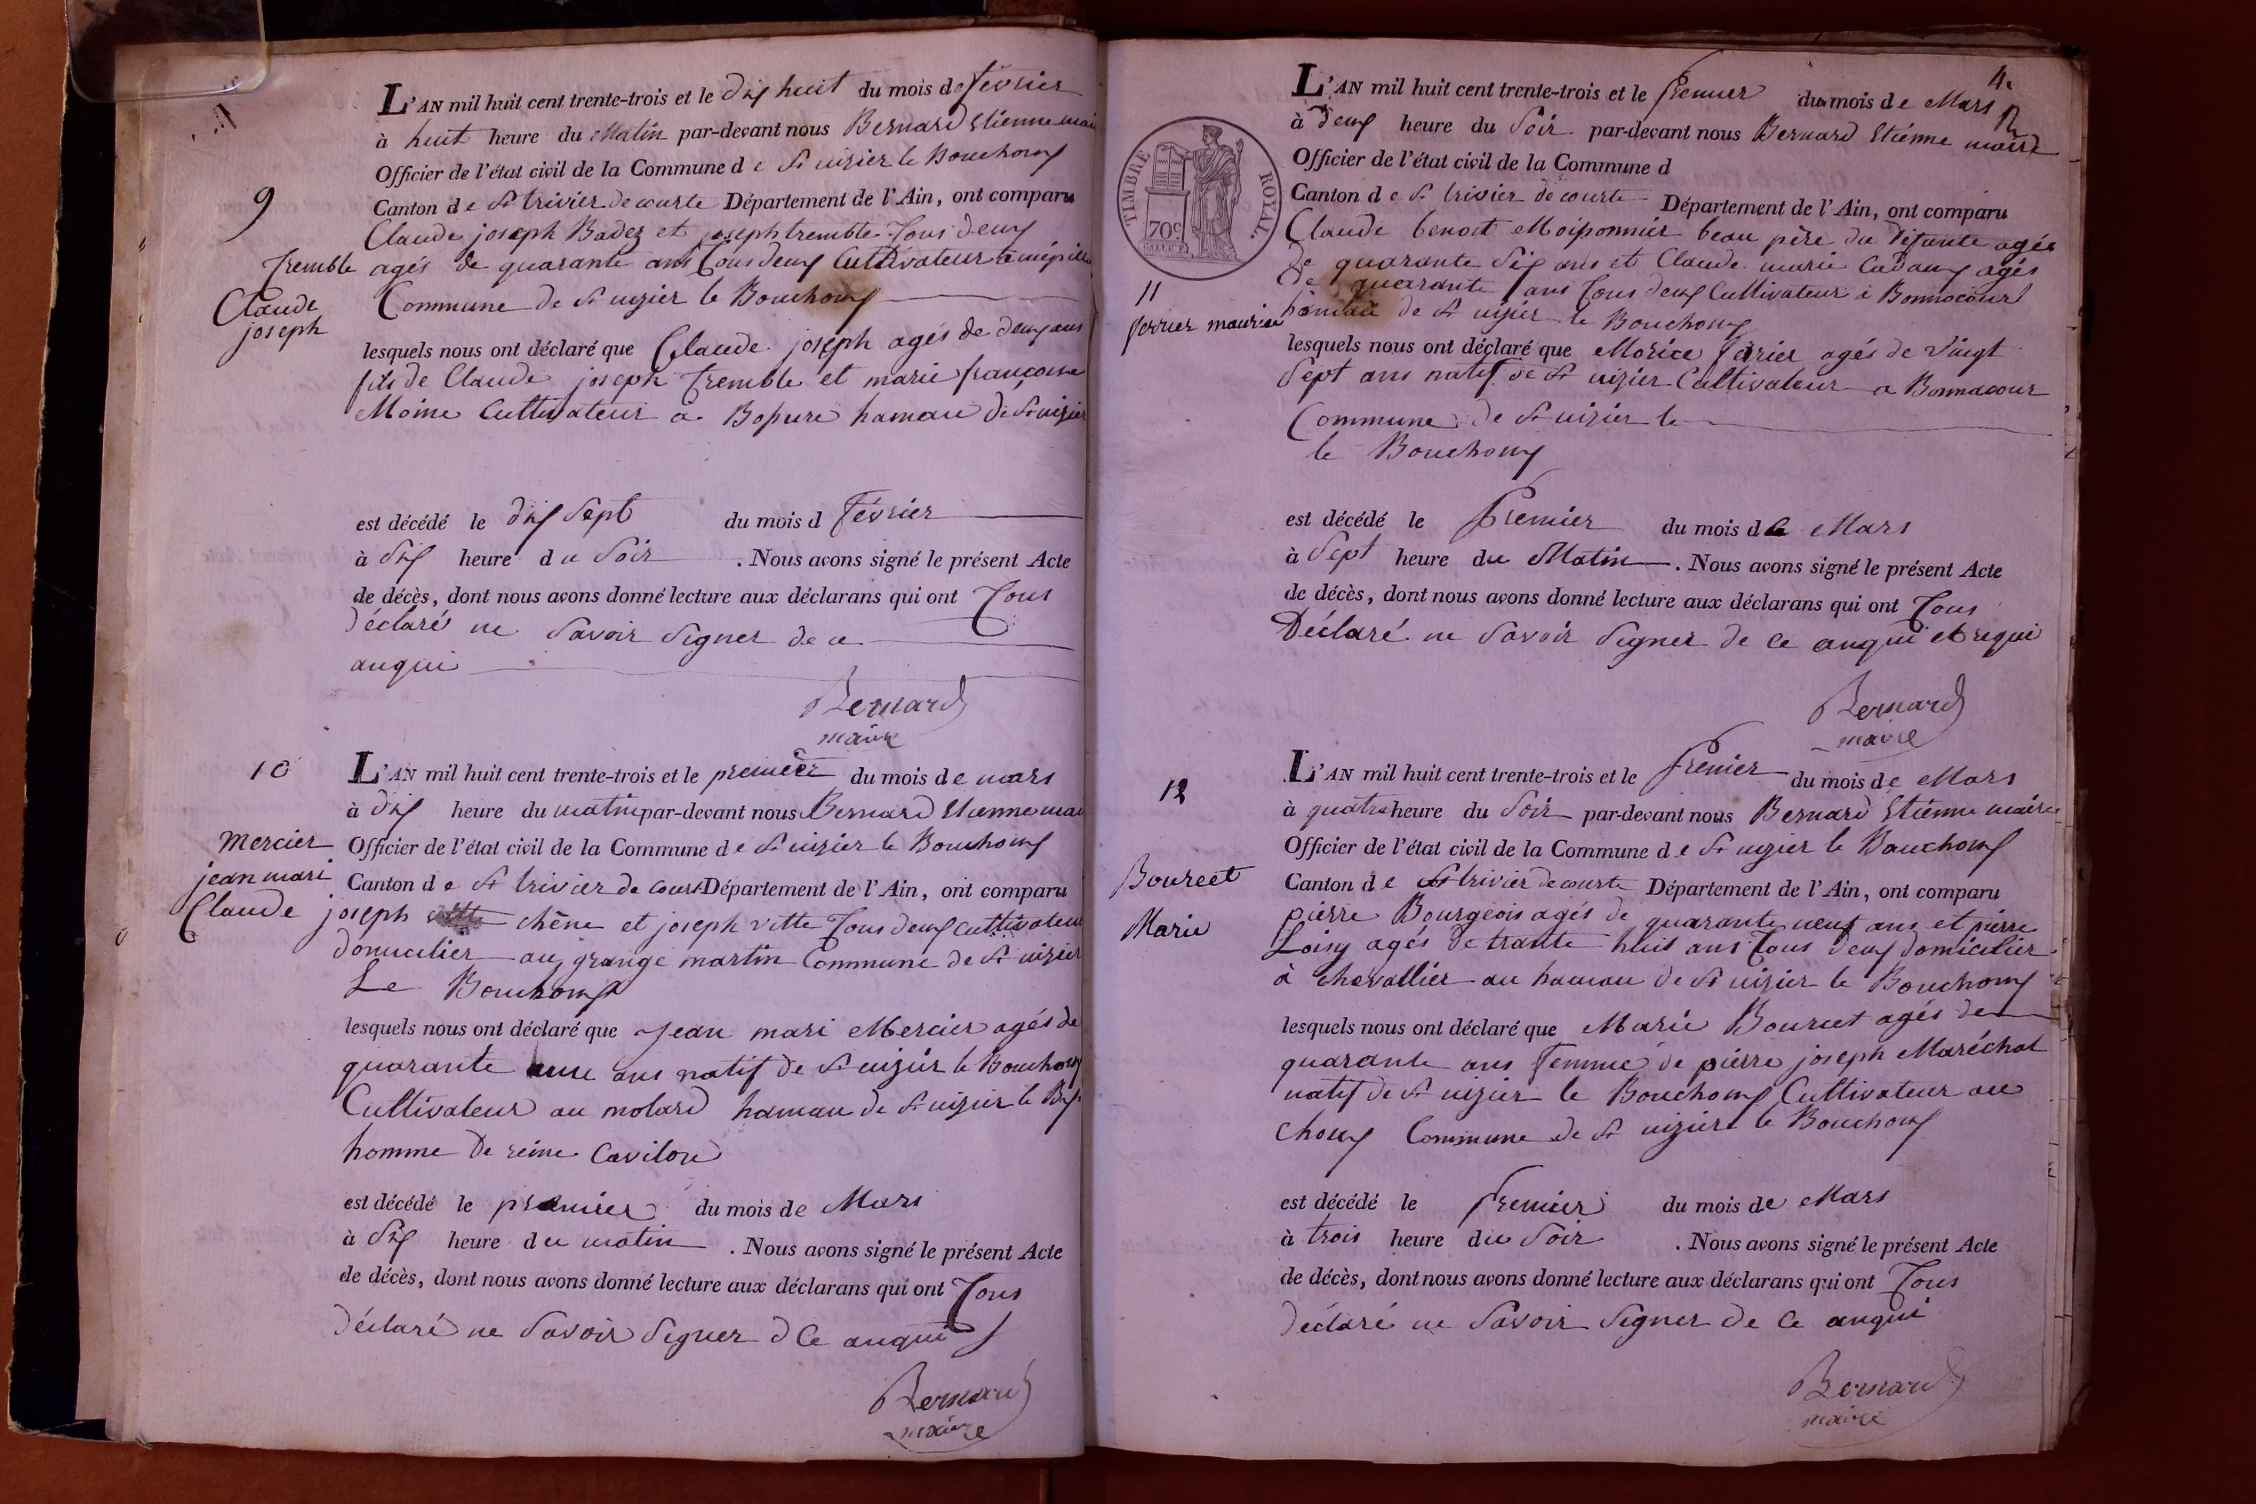 9
Tremble
Claude
joseph
L'AN mil huit cent trente-trois et le dix huit du mois de février
à huit heure du Matin par-devant nous Bernard Etienne mai
Officier de l'état civil de la Commune de St nizier le Bouchoux
Canton de St trivier de courte Département de l'Ain, ont comparu
Claude joseph Badez et joseph tremble Tous deux
agés de quarante ans Tous deux Cultivateur
Commune de St nizier le Bouchoux
lesquels nous ont déclaré que Claude joseph agés de deux ans
fils de Claude joseph Tremble et marie françoise
Moine Cultivateur a hamau de St nizier
est décédé le dix Sept du mois d Février
à dix heure du Soir . Nous avons signé le présent Acte
de décès, dont nous avons donné lecture aux déclarans qui ont Tous
déclaré ne Savoir Signer de ce
anqui
Bernard
maire
10
Mercier
jean mari
Claude
L'AN mil huit cent trente-trois et le premier du mois de mars
à dix heure du matin par-devant nous Bernard Etienne mai
Officier de l'état civil de la Commune de St nizier le Bouchoux
Canton de St trivier de court Département de l'Ain, ont comparu
joseph chêne et joseph vitte Tous deux cultivateur
domicilier aux grange martin Commune de St nizier
Le Bouchoux
lesquels nous ont déclaré que Jean mari Mercier agés de
quarante ans natif de St nizier le Bouchoux
Cultivateur au molard hamau de St nizier le Bx
homme De reine Cavilon
est décédé le premier du mois de Mars
à Six heure du matin . Nous avons signé le présent Acte
de décès, dont nous avons donné lecture aux déclarans qui ont Tous
déclaré ne Savoir Signer d Ce anqui
Bernard
maire
4.
TIMBRE ROYAL.
70c
11
ferrier maurice
L'AN mil huit cent trente-trois et le Premier du mois de Mars
à deux heure du Soir par-devant nous Bernard Etienne maire
Officier de l'état civil de la Commune d
Canton de St trivier de courte Département de l'Ain, ont comparu
Claude benoit Moissonnier beau père du défunte agés
de quarante Six ans et Claude marie Cadoux agés
de quarante ans Tous deux Cultivateur à Bonnacour
hamau de St nizier le Bouchoux
lesquels nous ont déclaré que Morice ferier agés de Vingt
Sept ans natif de St nizier Cultivateur a Bonnacour
Commune de St nizier le
le Bouchoux
est décédé le Premier du mois de Mars
à Sept heure du Matin . Nous avons signé le présent Acte
de décès, dont nous avons donné lecture aux déclarans qui ont Tous
Déclaré ne Savoir Signer de Ce anqui et requi
Bernard
maire
12
Bourcet
Marie
L'AN mil huit cent trente-trois et le Premier du mois de Mars
à quatre heure du Soir par-devant nous Bernard Etienne maire
Officier de l'état civil de la Commune de St nizier le Bouchoux
Canton de St trivier de courte Département de l'Ain, ont comparu
pierre Bourgeois agés de quarante neuf ans et pierre
Loisy agés de trante huit ans Tous deux domicilier
à Chevallier au hamau de St nizier le Bouchoux
lesquels nous ont déclaré que Marie Bourcet agés de
quarante ans femme de pierre joseph Maréchal
natif de St nizier le Bouchoux Cultivateur au
choux Commune de St nizier le Bouchoux
est décédé le Premier du mois de Mars
à trois heure du Soir . Nous avons signé le présent Acte
de décès, dont nous avons donné lecture aux déclarans qui ont Tous
déclaré ne Savoir Signer de Ce anqui
Bernard
maire